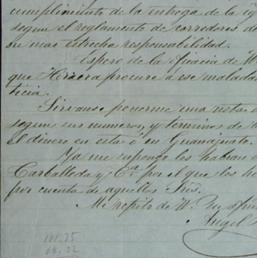 cumplimiento de la entrega de la
segun el reglamento de corredores de
su mas estrecha responsabilidad.
Espero de la eficacia de
que Herrera procure
ticia.
Sirvanse ponerme una nota
segun sus numeros, y terminos de
el dinero en esta ó en Guanajuato.
Ya me supongo les habian
Carballeda y Ca. por el que les
por cuenta de aquellos Sres.
Me repito de V.
Angel
101.75